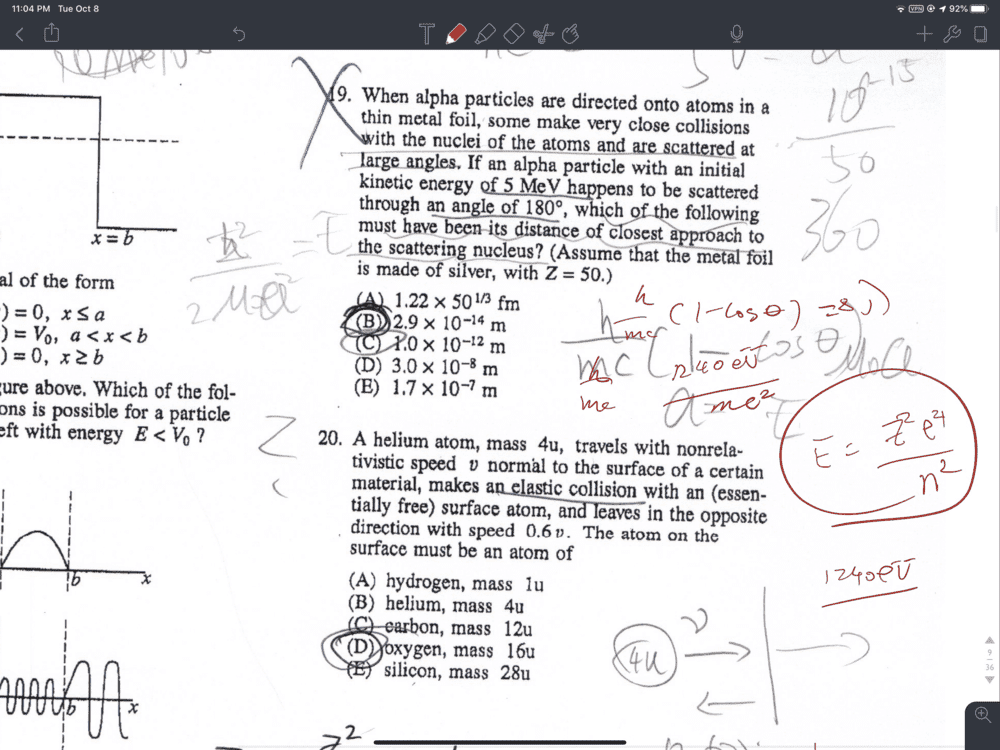 11:04 PM Tue Oct 8
VPN 92%
19. When alpha particles are directed onto atoms in a
thin metal foil, some make very close collisions
with the nuclei of the atoms and are scattered at
large angles. If an alpha particle with an initial
kinetic energy of 5 MeV happens to be scattered
through an angle of 180°, which of the following
must have been its distance of closest approach to
the scattering nucleus? (Assume that the metal foil
is made of silver, with Z = 50.)
(A) 1.22 × 50^1/3 fm
(B) 2.9 × 10^-14 m
(C) 1.0 × 10^-12 m
(D) 3.0 × 10^-8 m
(E) 1.7 × 10^-7 m
20. A helium atom, mass 4u, travels with nonrela-
tivistic speed v normal to the surface of a certain
material, makes an elastic collision with an (essen-
tially free) surface atom, and leaves in the opposite
direction with speed 0.6v. The atom on the
surface must be an atom of
(A) hydrogen, mass 1u
(B) helium, mass 4u
(C) carbon, mass 12u
(D) oxygen, mass 16u
(E) silicon, mass 28u
x = b
al of the form
) = 0, x ≤ a
) = V₀, a < x < b
) = 0, x ≥ b
gure above. Which of the fol-
ons is possible for a particle
eft with energy E < V₀ ?
b x
b x
10^-15
50
360
h/mc (1 - cos θ)
h/mc (1 - cos θ)
1240 eV
mc²
E = Z² e⁴ / n²
1240 eV
4u
v
Z²
9
36